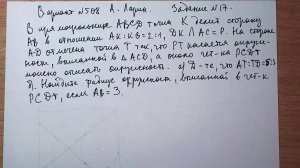 Вариант №508 А. Ларина. Задание №17.
В прямоугольнике ABCD точка K делит сторону
AB в отношении AK:KB=2:1, DK ∩ AC = P. На стороне
AD отмечена точка T так, что PT касается окруж-
ности, вписанной в △ACD, а около чет-ка PCDT
можно описать окружность. а) Д-те, что AT:TD=5:3
б) Найдите радиус окружности, вписанной в чет-к
PCDT, если AB=3.